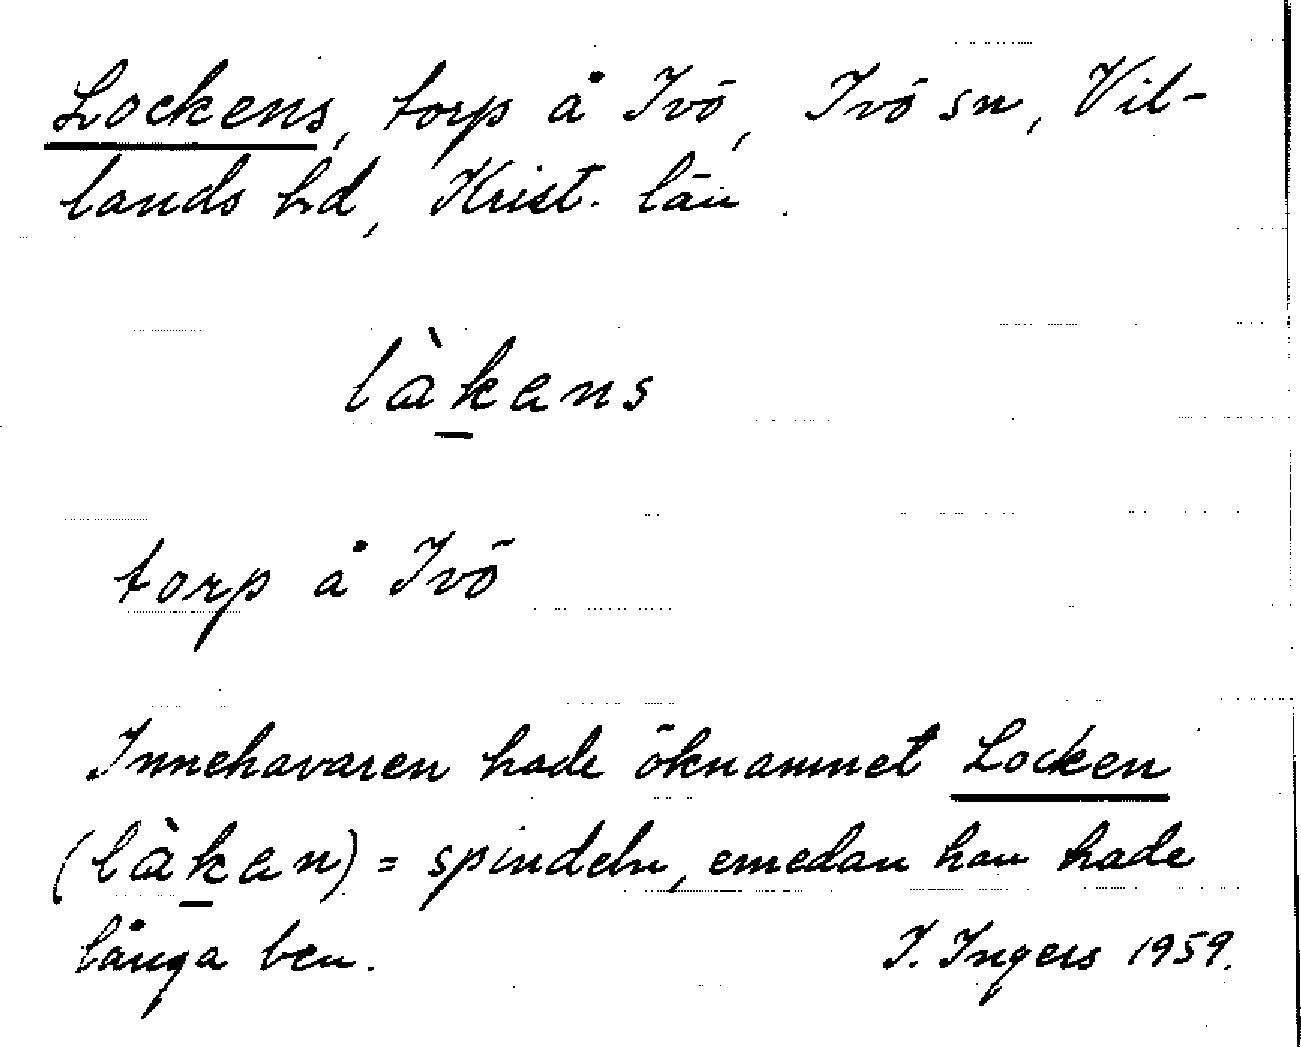 Lockens, torp å Ivö, Ivö sn, Vil-
lands hd, Krist. län.
làkans
torp å Ivö
Innehavaren hade öknamnet Locken
(làkan) = spindeln, emedan han hade
långa ben. I. Ingers 1959.